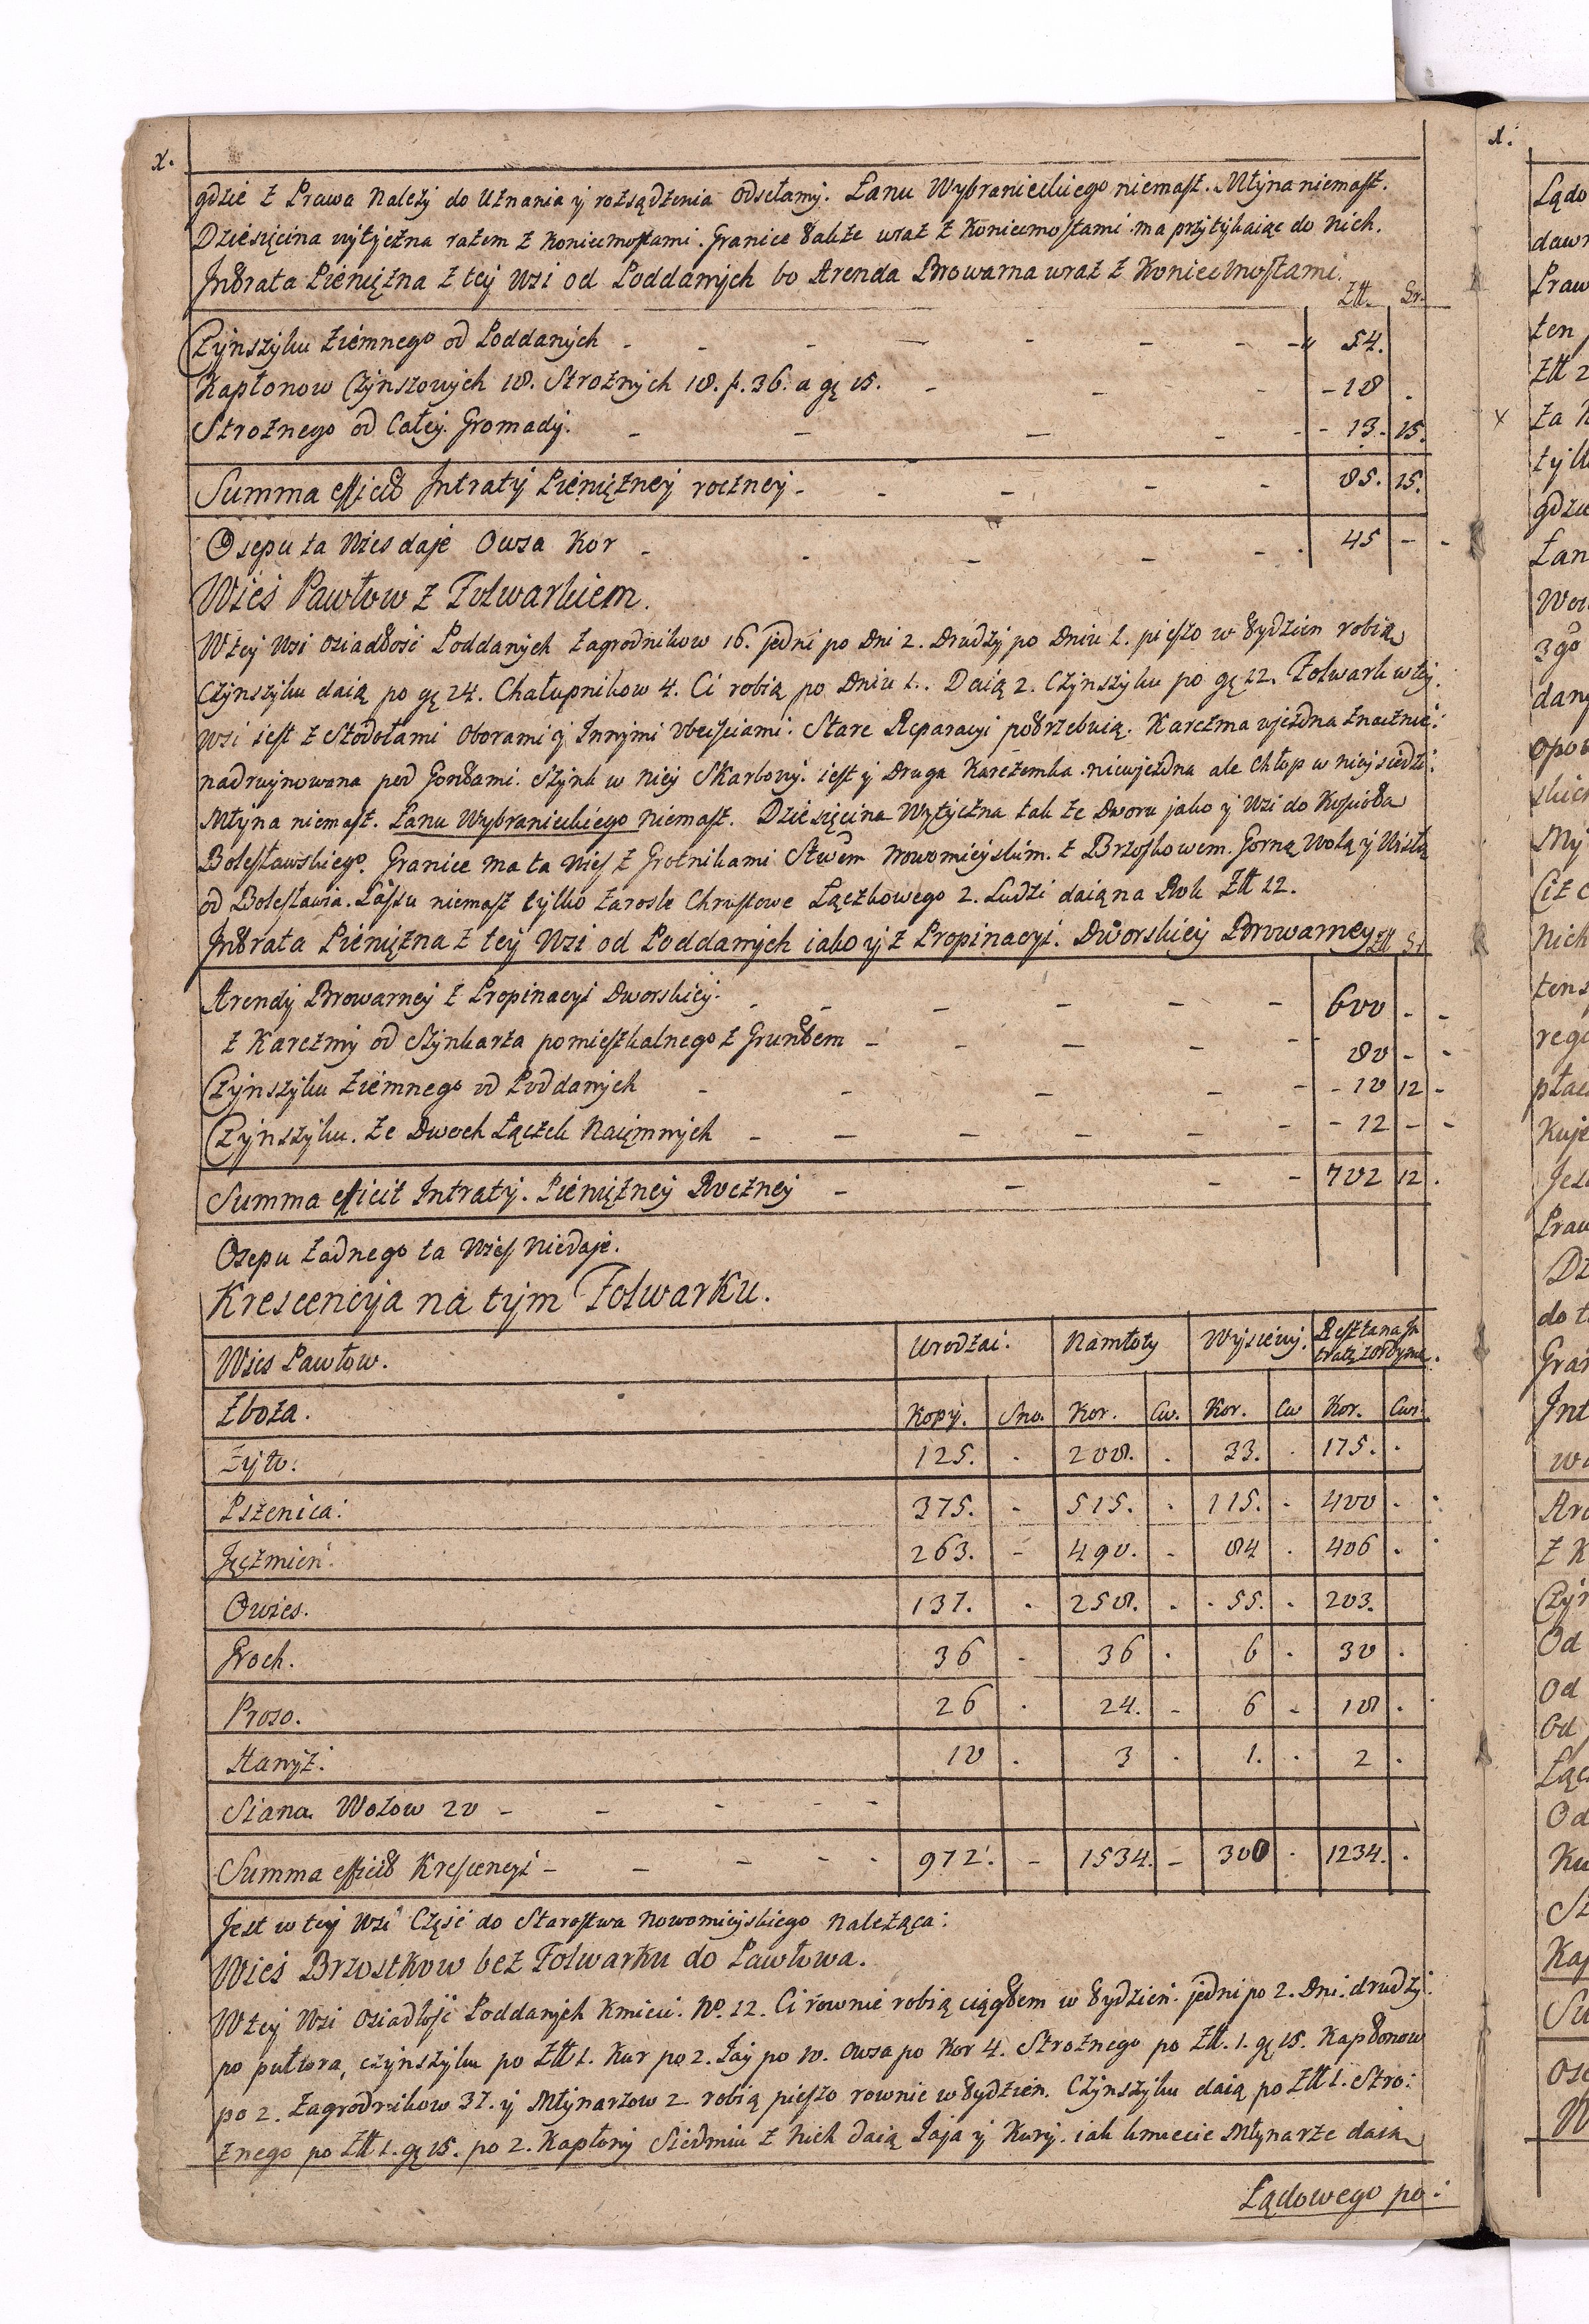 x.
gdzie z Prawa Należy do Uznania y rozsądzenia odsełamy. Łanu Wybranieckiego niemasz. Młyna niemasz.
Dziesięcina wytyczna razem z Koniecmostami. Granice także wraz z Koniecmostami ma przytykaiąc do nich.
Intrata Pieniężna z tey Wsi od Poddanych bo Arenda Browarna wraz z Koniecmostami.
Złł. Gr.
Czynszyku Ziemnego od Poddanych - - - - - - - 54.
Kapłonow Czynszowych 18. Strożnych 18. f. 36. a gę 15. - - - 18 .
Strożnego od Całey Gromady. - - - - - 13. 15.
Summa efficit Intraty Pieniężney roczney - - - - - 85. 15.
Osepu ta Wies daje Owsa Kor - - - - - 45 - -
Wieś Pawłow z Folwarkiem.
W tey Wsi osiadłość Poddanych Zagrodnikow 16. jedni po Dni 2. Drudzy po Dniu 1. pieszo w tydzien robią
Czynszyku daią po gę 24. Chałupnikow 4. Ci robią po Dniu 1. Daią 2. Czynszyku po gę 12. Folwark w tey
Wsi iest z Stodołami Oborami y Innymi obeisciami. Stare Reparacyi potrzebuią. Karczma wjezdna znacznie
nadruynowana pod Gontami. Szynk w niey Skarbowy. iest y Druga Karczemka niewjezdna ale Chłop w niey siedzi.
Młyna niemasz. Łanu Wybranieckiego niemasz. Dziesięcina Wytyczna tak ze Dworu jako y Wsi do Kościoła
Bolesławskiego. Granice ma ta Wies z Grotnikami Stwem Nowomieyskim. z Brzoskowem. Gorną Wolą y Wisłą
od Bolesławia. Lassu niemasz tylko zarosle Chrustowe Łączkowego 2. Ludzi daią na Rok Złł 12.
Intrata Pieniężna z tey Wsi od Poddanych iako y z Propinacyi. Dworskiey Browarney Złł Gr
Arendy Browarney z Propinacyi Dworskiey. - - - - - - 600 - -
z Karczmy od Szynkarza pomieszkalnego z Gruntem - - - - - 80 - -
Czynszyku Ziemnego od Poddanych - - - - - 10 12 -
Czynszyku. Ze Dwoch Łączek Naiemnych - - - - - - - 12 - -
Summa efficit Intraty. Pieniężney Roczney - - - - 702 12 .
Osepu Żadnego ta Wies niedaje.
Krescencija na tym Folwarku.
Wies Pawłow. Urodzai. Namłoty Wysiewy. Reszta na In
tratę
Zboża. Kopy. Sno. Kor. Cw. Kor. Cw Kor. Cwi.
Żyto. 125. . 208. . 33. . 175. .
Pszenica: 375. - 515. . 115. . 400 .
Jęczmień. 263. - 490. . 84 . 406 .
Owies. 137. . 258. . 55. . 203.
Groch. 36 - 36 . 6 . 30 .
Proso. 26 . 24. - 6 - 18 .
Hanyż. 10 . 3 . 1. . 2 .
Siana Wozow 20 - - - - -
Summa efficit Krescencyi - - - - - 972. - 1534. - 300 . 1234. .
Jest w tey Wsi Część do Starostwa Nowomieyskiego Należąca.
Wieś Brzostkow bez Folwarku do Pawłowa.
W tey Wsi osiadłość Poddanych Kmieci. No. 12. Ci rownie robią ciągłem w tydzień. jedni po 2. Dni. drudzy
po pułtora, czynszyku po Złł 1. Kur po 2. Jay po 10. Owsa po Kor 4. Strożnego po Złł. 1. gę 15. Kapłonow
po 2. Zagrodnikow 37. y Młynarzow 2 robią pieszo rownie w tydzien. Czynszyku daią po Złł 1. Stro:
żnego po Złł 1. gę 15. po 2. Kapłony Siedmiu z nich daią Jaja y Kury. iak kmiecie Młynarze daią
Łądowego po: